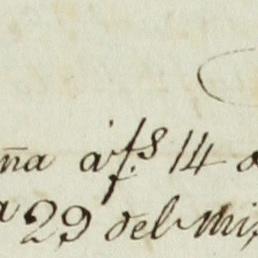 ña à fs. 14
29 del mis